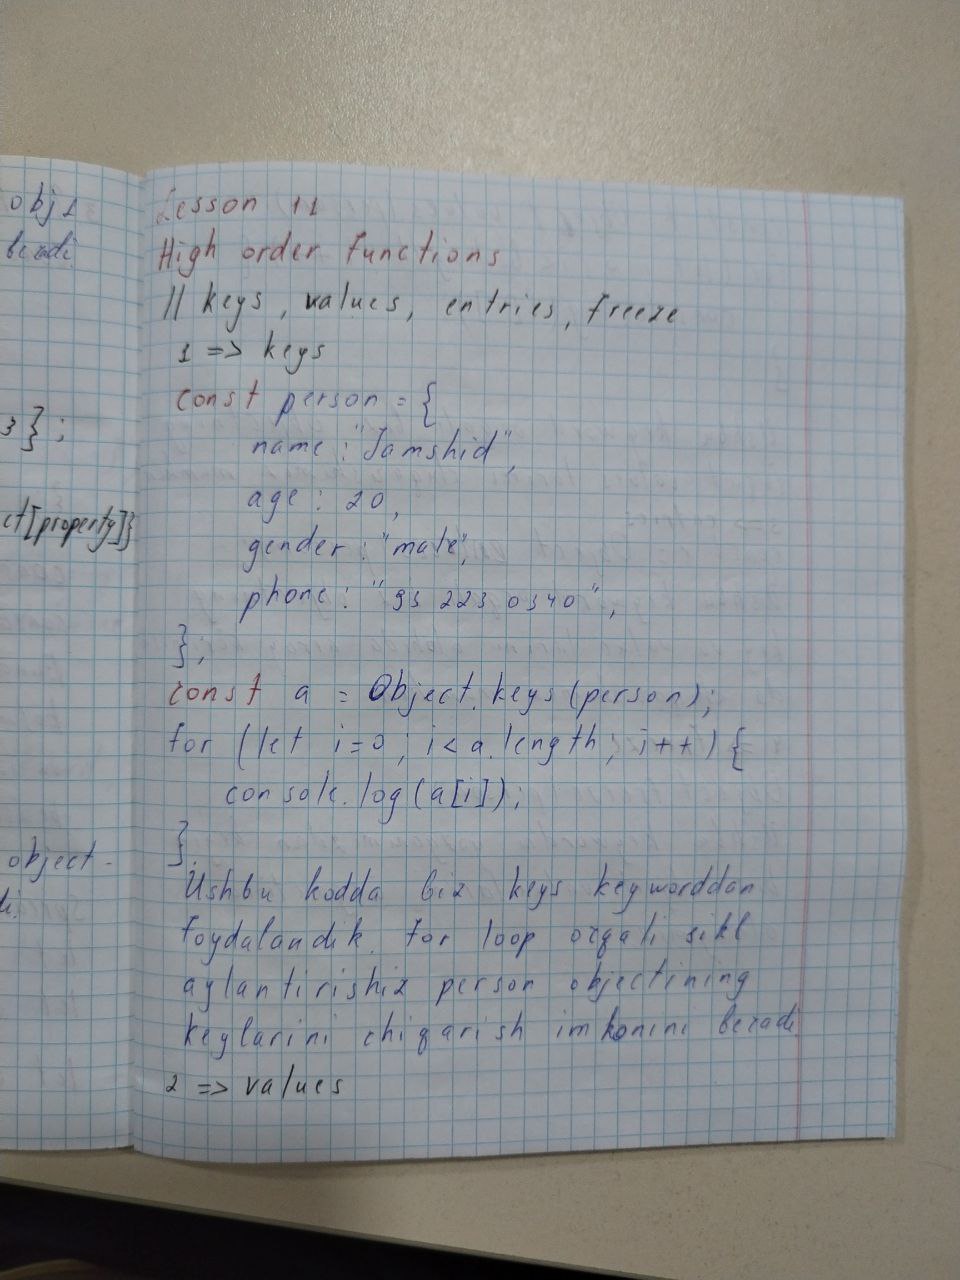 obj1
beradi
3};
ct[property]}
object-
di.
Lesson 11
High order functions
// keys, values, entries, freeze
1 => keys
const person = {
name : "Jamshid",
age : 20,
gender : "male",
phone : "93 223 0340",
};
const a = Object.keys(person);
for (let i=0; i<a.length; i++) {
console.log(a[i]);
}
Ushbu kodda biz keys keyworddan
foydalandik. for loop orqali sikl
aylantirishiz person objectining
keylarini chiqarish imkonini beradi
2 => values